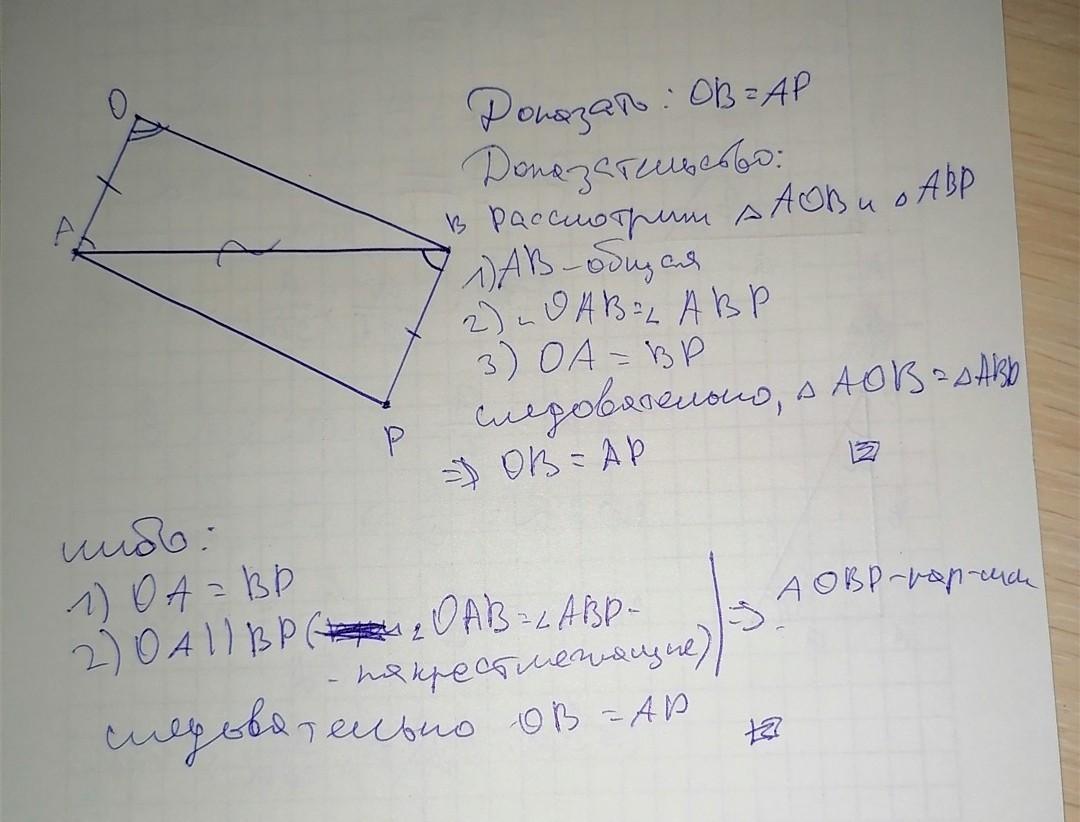 O
A
B
P
Доказать: OB = AP
Доказательство:
Рассмотрим △AOB и △ABP
1) AB – общая
2) ∠OAB = ∠ABP
3) OA = BP
следовательно, △AOB = △ABP
=> OB = AP
либо:
1) OA = BP
2) OA || BP ( ∠OAB = ∠ABP -
- накрест лежащие)
=> AOBP – пар-мм
следовательно OB = AP